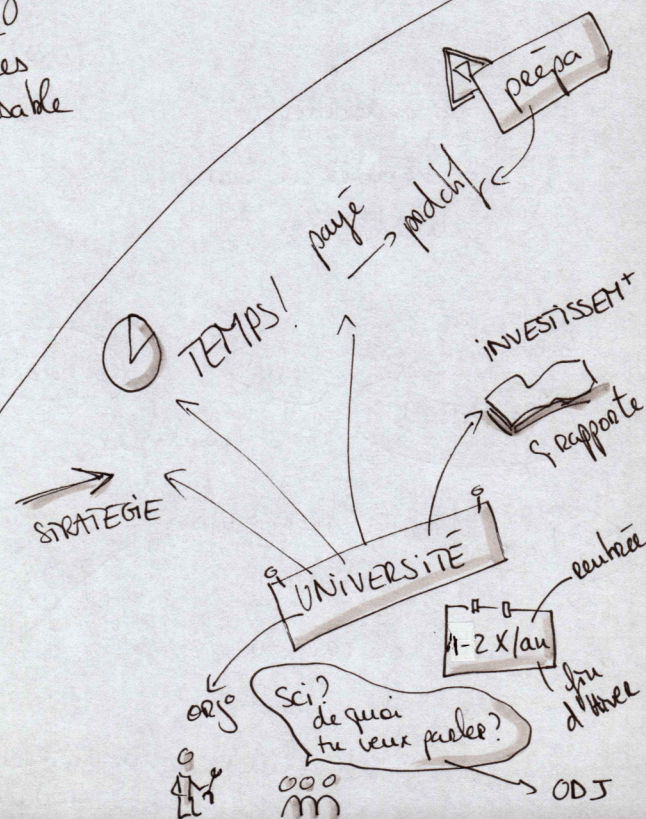 es
sable
prépa
payé
productif
TEMPS!
INVESTISSEMt
ç rapporte
STRATEGIE
UNIVERSITÉ
rentrée
1-2 X/an
fin
d'hiver
Sci?
de quoi
tu veux parler?
ODJ